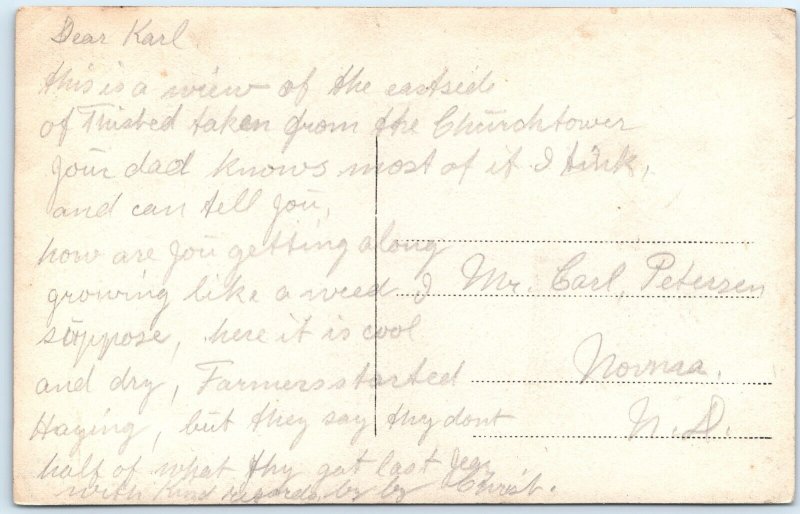 Dear Karl
this is a wiew of the eastside
of Thisted taken from the Churchtower
your dad knows most of it I tink,
and can tell you,
how are you getting along
growing like a weed I
suppose, here it is cool
and dry, Farmers started
Haying, but they say thy dont
half of what thy got last Jear
with Kind regards by by Christ.
Mr. Carl, Petersen
N. D.